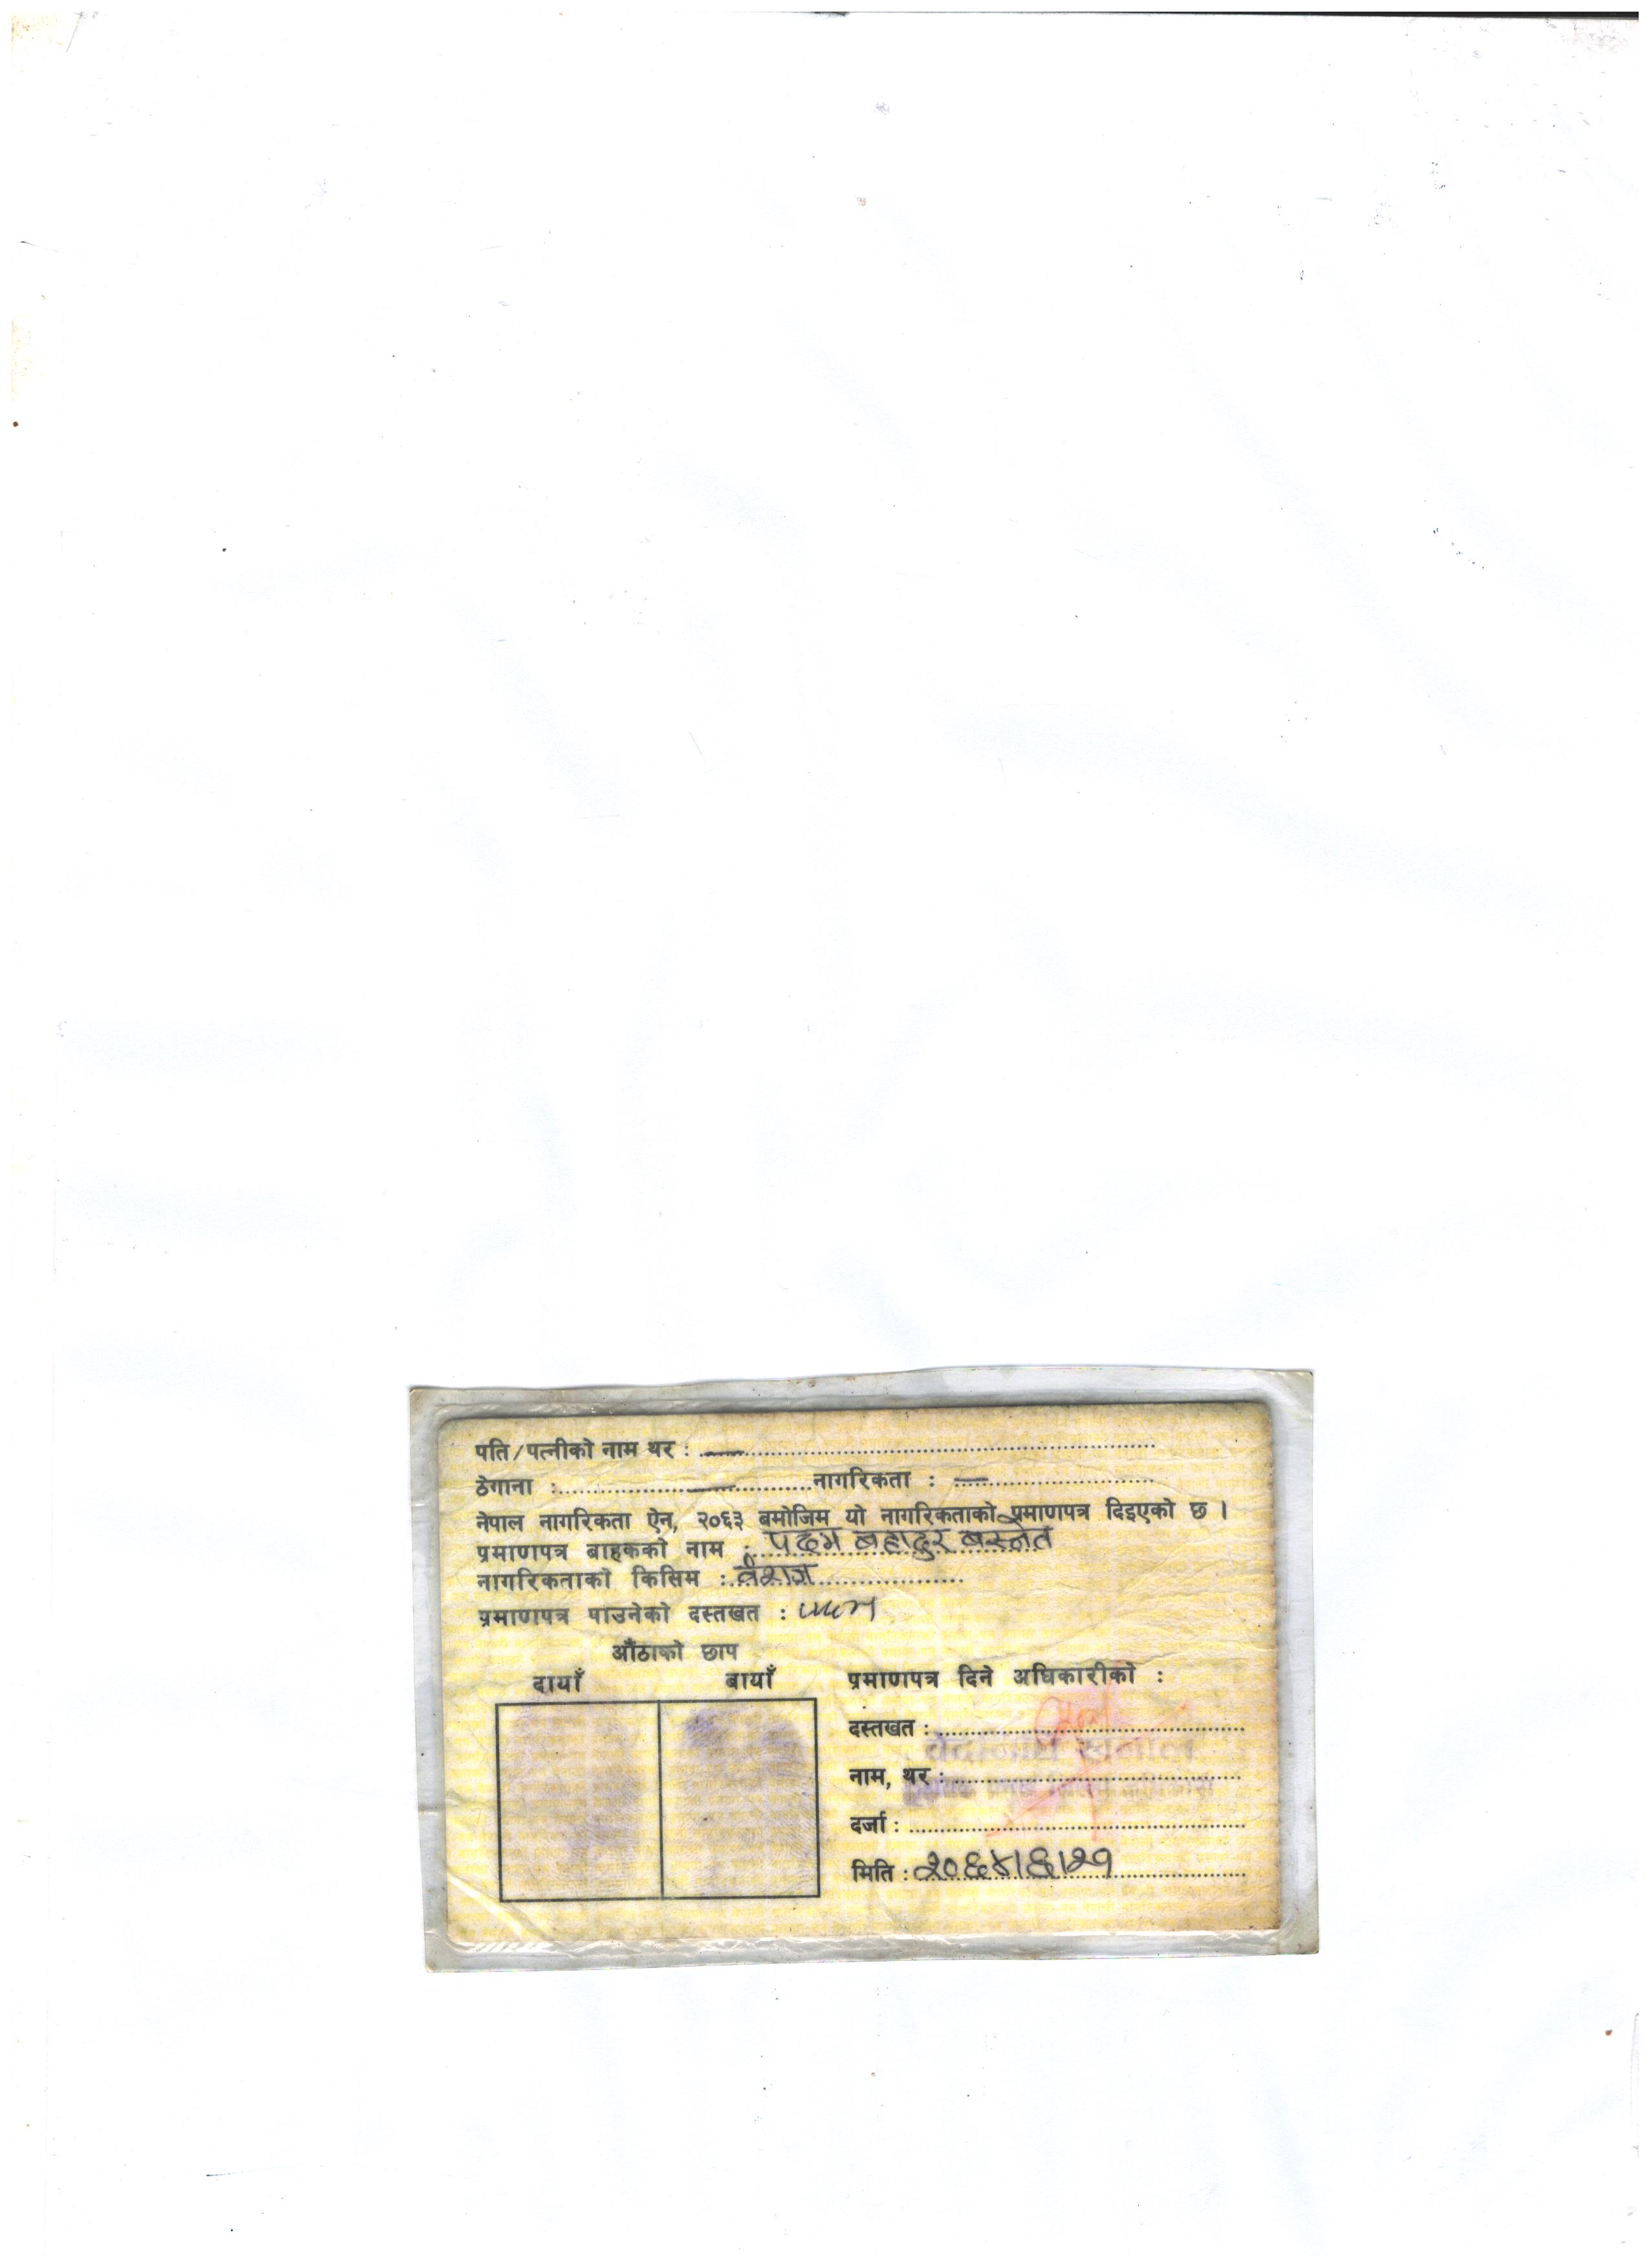 पति/पत्नीको नाम थर : ........................
ठेगाना : ........................ नागरिकता : ........................
नेपाल नागरिकता ऐन, २०६३ बमोजिम यो नागरिकताको प्रमाणपत्र दिइएको छ ।
प्रमाणपत्र बाहकको नाम : पदम बहादुर बस्नेत
नागरिकताको किसिम : वंशज
प्रमाणपत्र पाउनेको दस्तखत :
औंठाको छाप
दायाँ बायाँ
प्रमाणपत्र दिने अधिकारीको :
दस्तखत : ........................
नाम, थर : ........................
दर्जा : ........................
मिति : २०६४।६।२१